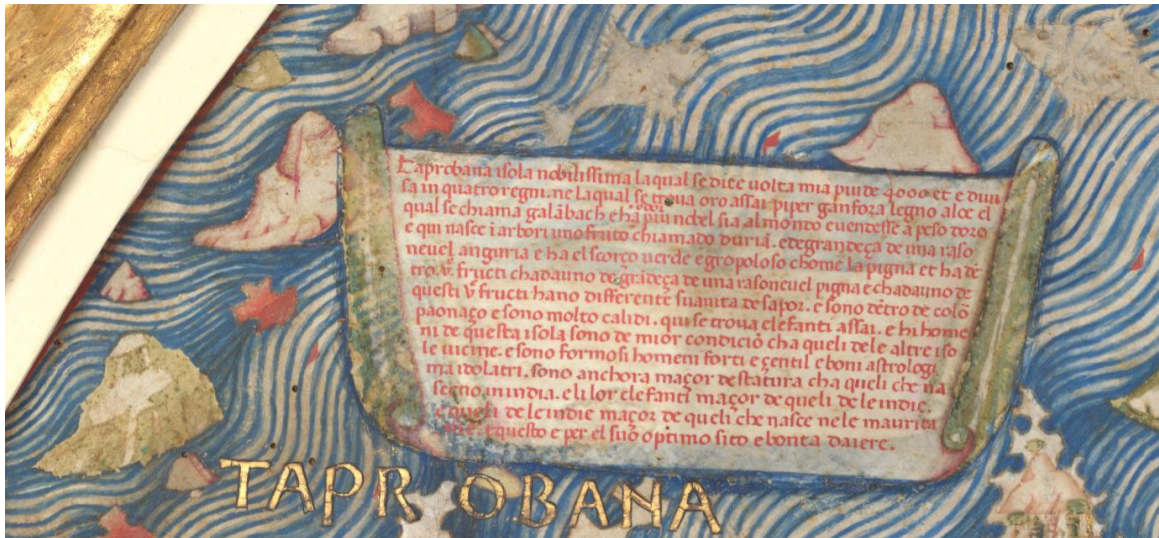 Taprobana isola nobilissima la qual se dice uolta mia piu de 4000 et e diui
sa in quatro regni. ne la qual se troua oro assai. piper ganfora legno aloe el
qual se chiama galābach ch'a piu nobel sia al mondo e uendesse a peso d'oro
odor
e qui nasce ī arbori uno fruto chiamado duriā. e de grandeça de una raso
neuel anguria e ha el scorço uerde e gropoloso chome la pigna et ha dē
tro .v. fructi chadauno de grādeça de una rasoneuel pigna e chadauno de
questi .v. fructi hano differente suauita de sapor. e sono dētro de colō
paonaço e sono molto calidi. qui se troua elefanti assai. e hi home
ni de questa isola sono de mior condiciō cha queli de le altre iso
le uicine. e sono formosi homeni forti e çentil e boni astrologi
ma idolatri. sono anchora maçor de statura cha queli che na
sceno in india. e li lor elefanti maçor de queli de le indie.
e queli de le indie maçor de queli che nasce ne le maurita
nie. e questo e per el suo optimo sito e bonta d aiere.
TAPROBANA